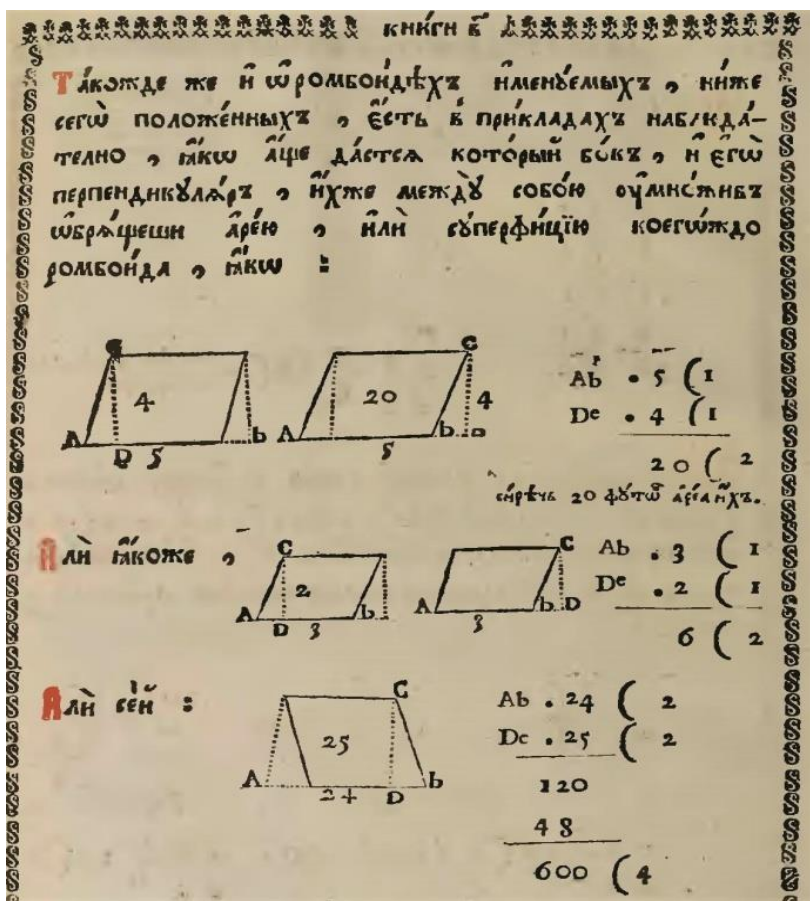 КНИ́ГИ В҃
Та́кожде же и҆ ѡ҆ ромбои́дѣхъ и҆менꙋ́емыхъ , ни́же
сегѡ̀ положе́нныхъ , є҆́сть в̾ прикла́дахъ наблюда́-
телно , ꙗ҆́кѡ а҆́ще да́стсѧ кото́рый бо́къ , и҆ є҆гѡ̀
перпендикꙋлѧ́ръ , и҆́хже междꙋ̀ собо́ю ᲂу҆мно́живъ
ѡ҆брѧ́щеши а҆ре́ю , и҆лѝ сꙋперфи́цїю коегѡ́ждо
ромбои́да , ꙗ҆́кѡ :
C
4
A
D 5
b
C
20
4
A
5
b
D
Ab . 5 ( 1
De . 4 ( 1
20 ( 2
си́рѣчь 20 фꙋ́тѡв а҆ре́а и҆́хъ.
И҆лѝ ꙗ҆́коже ,
C
2
A
D 3
b
C
A
3
b D
Ab . 3 ( 1
De . 2 ( 1
6 ( 2
И҆лѝ се́й :
C
25
A
24
D
b
Ab . 24 ( 2
De . 25 ( 2
120
48
600 ( 4